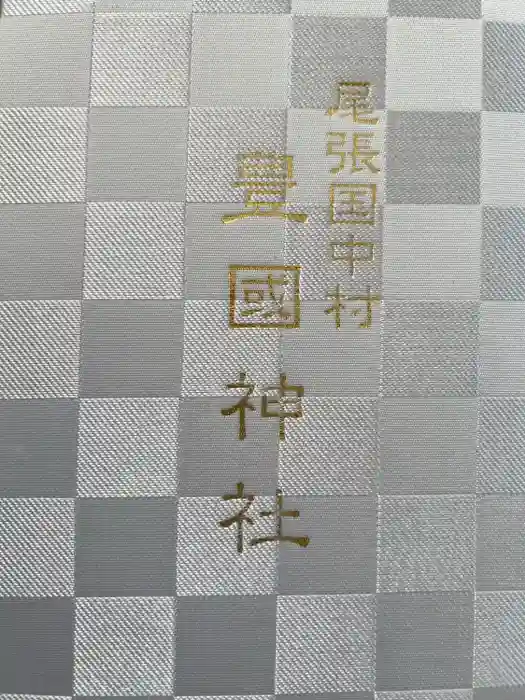 尾張国中村
豊國神社